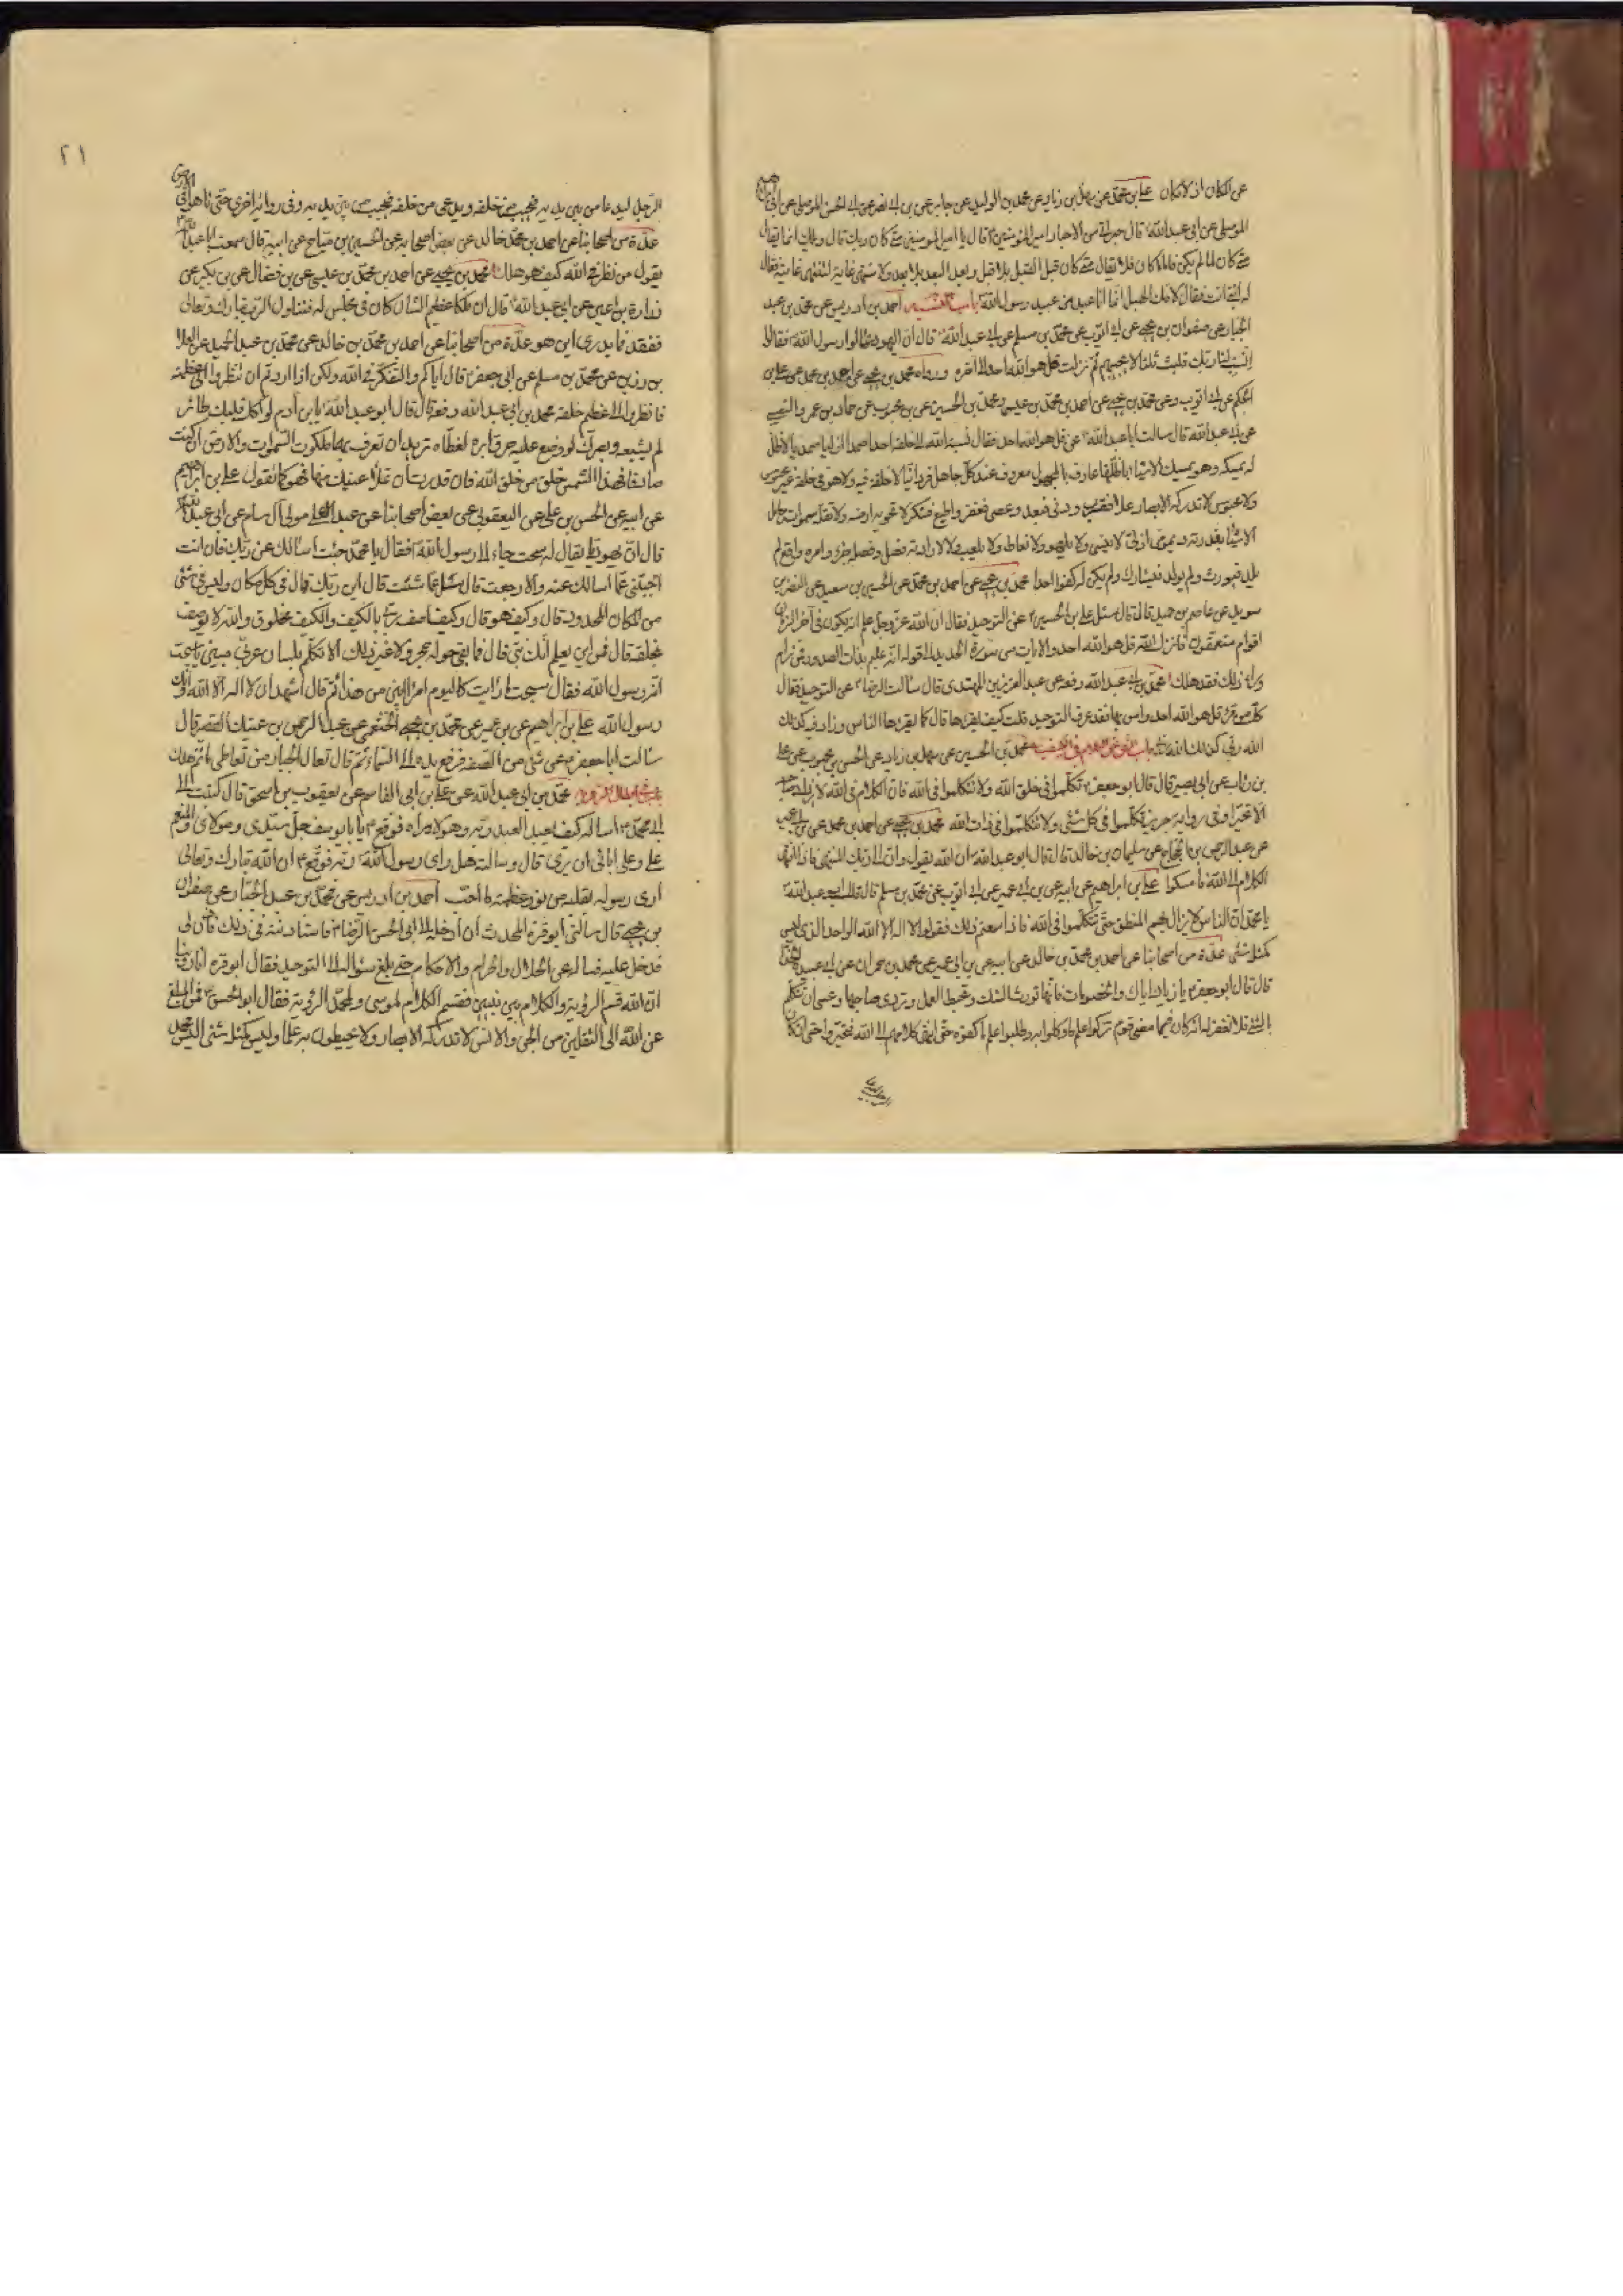 عن المكان اذ لا مكان علي بن محمد عن سهل بن زياد عن محمد بن الوليد عن ابن ابي نصر عن ابي الحسن الموصلي عن ابي
الموصلي عن ابي عبد الله قال حبر من الاحبار امير المؤمنين قال يا امير المؤمنين متى كان ربك قال ويلك انما يقال
متى كان لما لم يكن فاما ما كان فلا يقال متى كان قبل القبل بلا قبل وبعد البعد بلا بعد ولا منتهى غاية لتنتهي غايته فقال
له انبي انت فقال لامك الهبل انما انا عبد من عبيد رسول الله باب النسبة احمد بن ادريس عن محمد بن عبد
الجبار عن صفوان بن يحيى عن ابي ايوب عن محمد بن مسلم عن ابي عبد الله قال ان اليهود سالوا رسول الله فقالوا
انسب لنا ربك فلبث ثلثا لا يجيبهم ثم نزلت قل هو الله احد الى آخره ورواه محمد بن يحيى عن احمد بن محمد عن علي بن
الحكم عن ابي ايوب وعن محمد بن يحيى عن احمد بن محمد بن عيسى ومحمد بن الحسين عن بن محبوب عن حماد بن عمرو النصيبي
عن ابي عبد الله قال سالت ابا عبد الله عن قل هو الله احد فقال نسبة الله الى خلقه احدا صمدا ازليا صمديا لا ظل
له يمسكه وهو يمسك الاشياء باظلتها عارف بالمجهول معروف عند كل جاهل فردانيا لا خلقه فيه ولا هو في خلقه غير محسوس
ولا مجسوس لا تدركه الابصار علا فقرب ودنى فبعد وعصي فغفر واطيع فشكر لا تحويه ارضه ولا تقله سمواته حامل
الاشياء بقدرته ديمومي ازلي لا ينسى ولا يلهو ولا يغلط ولا يلعب ولا لارادته فصل وفصله جزاء وامره واقع لم
يلد فيورث ولم يولد فيشارك ولم يكن له كفوا احد محمد بن يحيى عن احمد بن محمد عن الحسين بن سعيد عن النضر بن
سويد عن عاصم بن حميد قال قال سئل علي بن الحسين عن التوحيد فقال ان الله عز وجل علم انه يكون في آخر الزمان
اقوام متعمقون فانزل الله قل هو الله احد والايات من سورة الحديد الى قوله انه عليم بذات الصدور فمن رام
وراء ذلك فقد هلك محمد بن ابي عبد الله رفعه عن عبد العزيز بن المهتدي قال سالت الرضا عن التوحيد فقال
كل من قرء قل هو الله احد وامن بها فقد عرف التوحيد قلت كيف يقرءها قال كما يقرءها الناس وزاد فيه كذلك
الله ربي كذلك الله ربي باب النهي عن الكلام في الكيفية محمد بن الحسين عن سهل بن زياد عن الحسن بن محبوب عن علي
بن رئاب عن ابي بصير قال قال ابو جعفر تكلموا في خلق الله ولا تتكلموا في الله فان الكلام في الله لا يزداد صاحبه
الا تحيرا وفي رواية حريز تكلموا في كل شئ ولا تتكلموا في ذات الله محمد بن يحيى عن احمد بن محمد عن بن ابي عمير
عن عبد الرحمن بن الحجاج عن سليمان بن خالد قال قال ابو عبد الله ان الله يقول وان الى ربك المنتهى فاذا انتهى
الكلام الى الله فامسكوا علي بن ابراهيم عن ابيه عن بن ابي عمير عن ابي ايوب عن محمد بن مسلم قال قال ابو عبد الله
يا محمد ان الناس لا يزال بهم المنطق حتى يتكلموا في الله فاذا سمعتم ذلك فقولوا لا اله الا الله الواحد الذي ليس
كمثله شئ عدة من اصحابنا عن احمد بن محمد بن خالد عن ابيه عن بن ابي عمير عن محمد بن حمران عن ابي عبيدة الحذاء
قال قال ابو جعفر يا زياد اياك والخصومات فانها تورث الشك وتحبط العمل وتردي صاحبها وعسى ان يتكلم
بالشئ فلا يغفر له انه كان فيما مضى قوم تركوا علم ما وكلوا به وطلبوا علم ما كفوه حتى انتهى كلامهم الى الله فتحيروا حتى ان كان
٢١
الرجل ليدعا من بين يديه فيجيب من خلفه ويدعى من خلفه فيجيب من بين يديه وفي رواية اخرى حتى تاهوا في الارض
عدة من اصحابنا عن احمد بن محمد بن خالد عن بعض اصحابه عن الحسين بن مياح عن ابيه قال سمعت ابا عبد الله
يقول من نظر في الله كيف هو هلك محمد بن يحيى عن احمد بن محمد بن عيسى عن بن فضال عن بن بكير عن
زرارة بن اعين عن ابي عبد الله قال ان ملكا عظيم الشان كان في مجلس له فتناول الرب تبارك وتعالى
ففقد فما يدرى اين هو عدة من اصحابنا عن احمد بن محمد بن خالد عن محمد بن عبد الحميد عن العلا
بن رزين عن محمد بن مسلم عن ابي جعفر قال اياكم والتفكر في الله ولكن اذا اردتم ان تنظروا الى عظمته
فانظروا الى عظيم خلقه محمد بن ابي عبد الله رفعه قال قال ابو عبد الله يا بن آدم لو اكل قلبك طائر
لم يشبعه وبصرك لو وضع عليه خرق ابرة لغطاه تريد ان تعرف بهما ملكوت السموات والارض ان كنت
صادقا فهذا الشمس خلق من خلق الله فان قدرت ان تملأ عينيك منها فهو كما تقول علي بن ابراهيم
عن ابيه عن الحسن بن علي عن اليعقوبي عن بعض اصحابنا عن عبد الاعلى مولى آل سام عن ابي عبد الله
قال ان يهوديا يقال له سبحت جاء الى رسول الله فقال يا محمد جئت اسالك عن ربك فان انت
اجبتني عما اسالك عنه والا رجعت قال سل عما شئت قال اين ربك قال في كل مكان وليس في شئ
من المكان المحدود قال وكيف هو قال وكيف اصف ربي بالكيف والكيف مخلوق والله لا يوصف
بخلقه قال فمن اين يعلم انك نبي قال فما بقي حوله حجر ولا غير ذلك الا تكلم بلسان عربي مبين يا سبحت
انه رسول الله فقال سبحت ما رايت كاليوم امرا ابين من هذا ثم قال اشهد ان لا اله الا الله وانك
رسول الله علي بن ابراهيم عن بن ابي عمير عن محمد بن يحيى الخثعمي عن عبد الرحمن بن عتيك القصير قال
سالت ابا جعفر عن شئ من الصفة فرفع يده الى السماء ثم قال تعالى الجبار من تعاطى ما ثم هلك
باب في ابطال الرؤية محمد بن ابي عبد الله عن علي بن ابي القاسم عن يعقوب بن اسحق قال كتبت الى
ابي محمد اساله كيف يعبد العبد ربه وهو لا يراه فوقع يا با يوسف جل سيدي ومولاي والمنعم
علي وعلى ابائي ان يرى قال وسالته هل راى رسول الله ربه فوقع ان الله تبارك وتعالى
ارى رسوله بقلبه من نور عظمته ما احب احمد بن ادريس عن محمد بن عبد الجبار عن صفوان
بن يحيى قال سألني ابو قرة المحدث ان أدخله الى ابي الحسن الرضا فاستاذنته في ذلك فاذن لي
فدخل عليه فساله عن الحلال والحرام والاحكام حتى بلغ سؤاله الى التوحيد فقال ابو قرة انا روينا
ان الله قسم الرؤية والكلام بين نبيين فقسم الكلام لموسى ولمحمد الرؤية فقال ابو الحسن فمن المبلغ
عن الله الى الثقلين من الجن والانس لا تدركه الابصار ولا يحيطون به علما وليس كمثله شئ اليس محمد